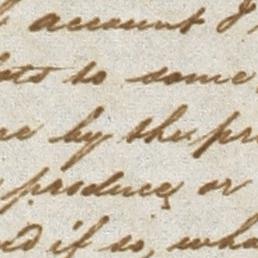 account
to some
by the
produce, or
if so, wha